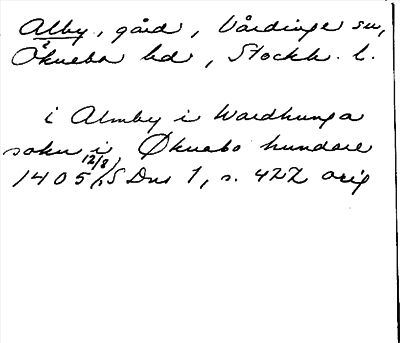 Alby, gård, Vårdinge sn,
Öknebo hd, Stockh. l.
i Almby i Wardhunga
sokn i Øknabo hundare
1405 12/8, SDns 1, s. 422 orig